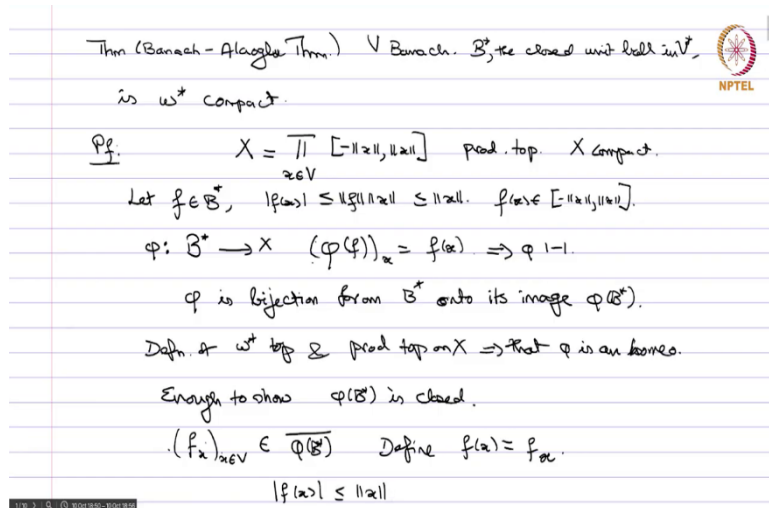 Thm (Banach-Alaoglu Thm.) V Banach. B*, the closed unit ball in V*,
NPTEL
is w* compact.
Pf: X = Π_{x∈V} [-||x||, ||x||] prod. top. X compact.
Let f ∈ B*, |f(x)| ≤ ||f|| ||x|| ≤ ||x||. f(x) ∈ [-||x||, ||x||].
φ: B* → X (φ(f))_x = f(x) ⇒ φ 1-1.
φ is bijection from B* onto its image φ(B*).
Defn. of w* top & prod top on X ⇒ that φ is an homeo.
Enough to show φ(B*) is closed.
(f_x)_{x∈V} ∈ \overline{φ(B*)} Define f(x) = f_x.
|f(x)| ≤ ||x||